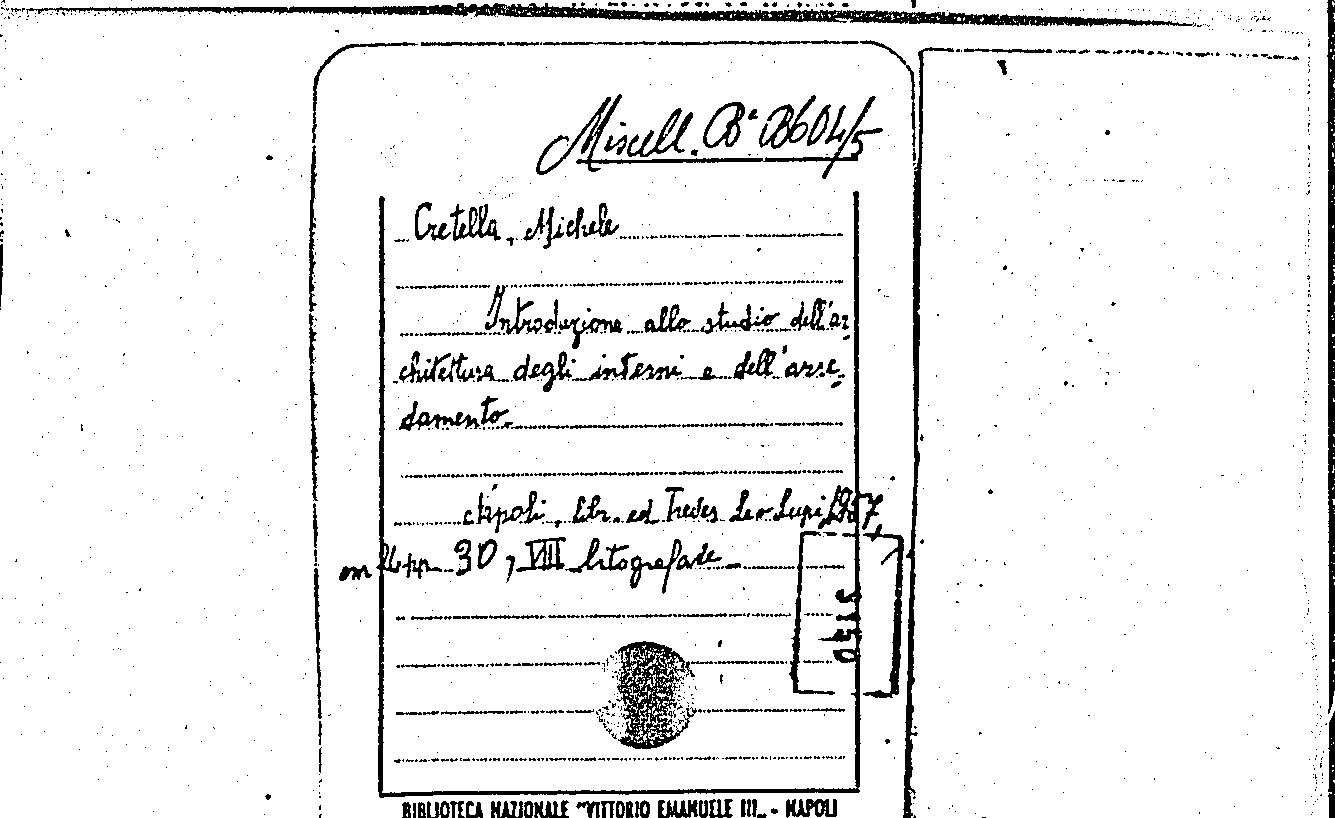 Miscell. Bª B604/5
Cretella, Michele
Introduzione allo studio dell'ar
chitettura degli interni e dell'arre
damento.
Napoli, libr. ed Treves Leo Lupi, 1957,
pp. 30, VIII litografate
BIBLIOTECA NAZIONALE "VITTORIO EMANUELE III" - NAPOLI